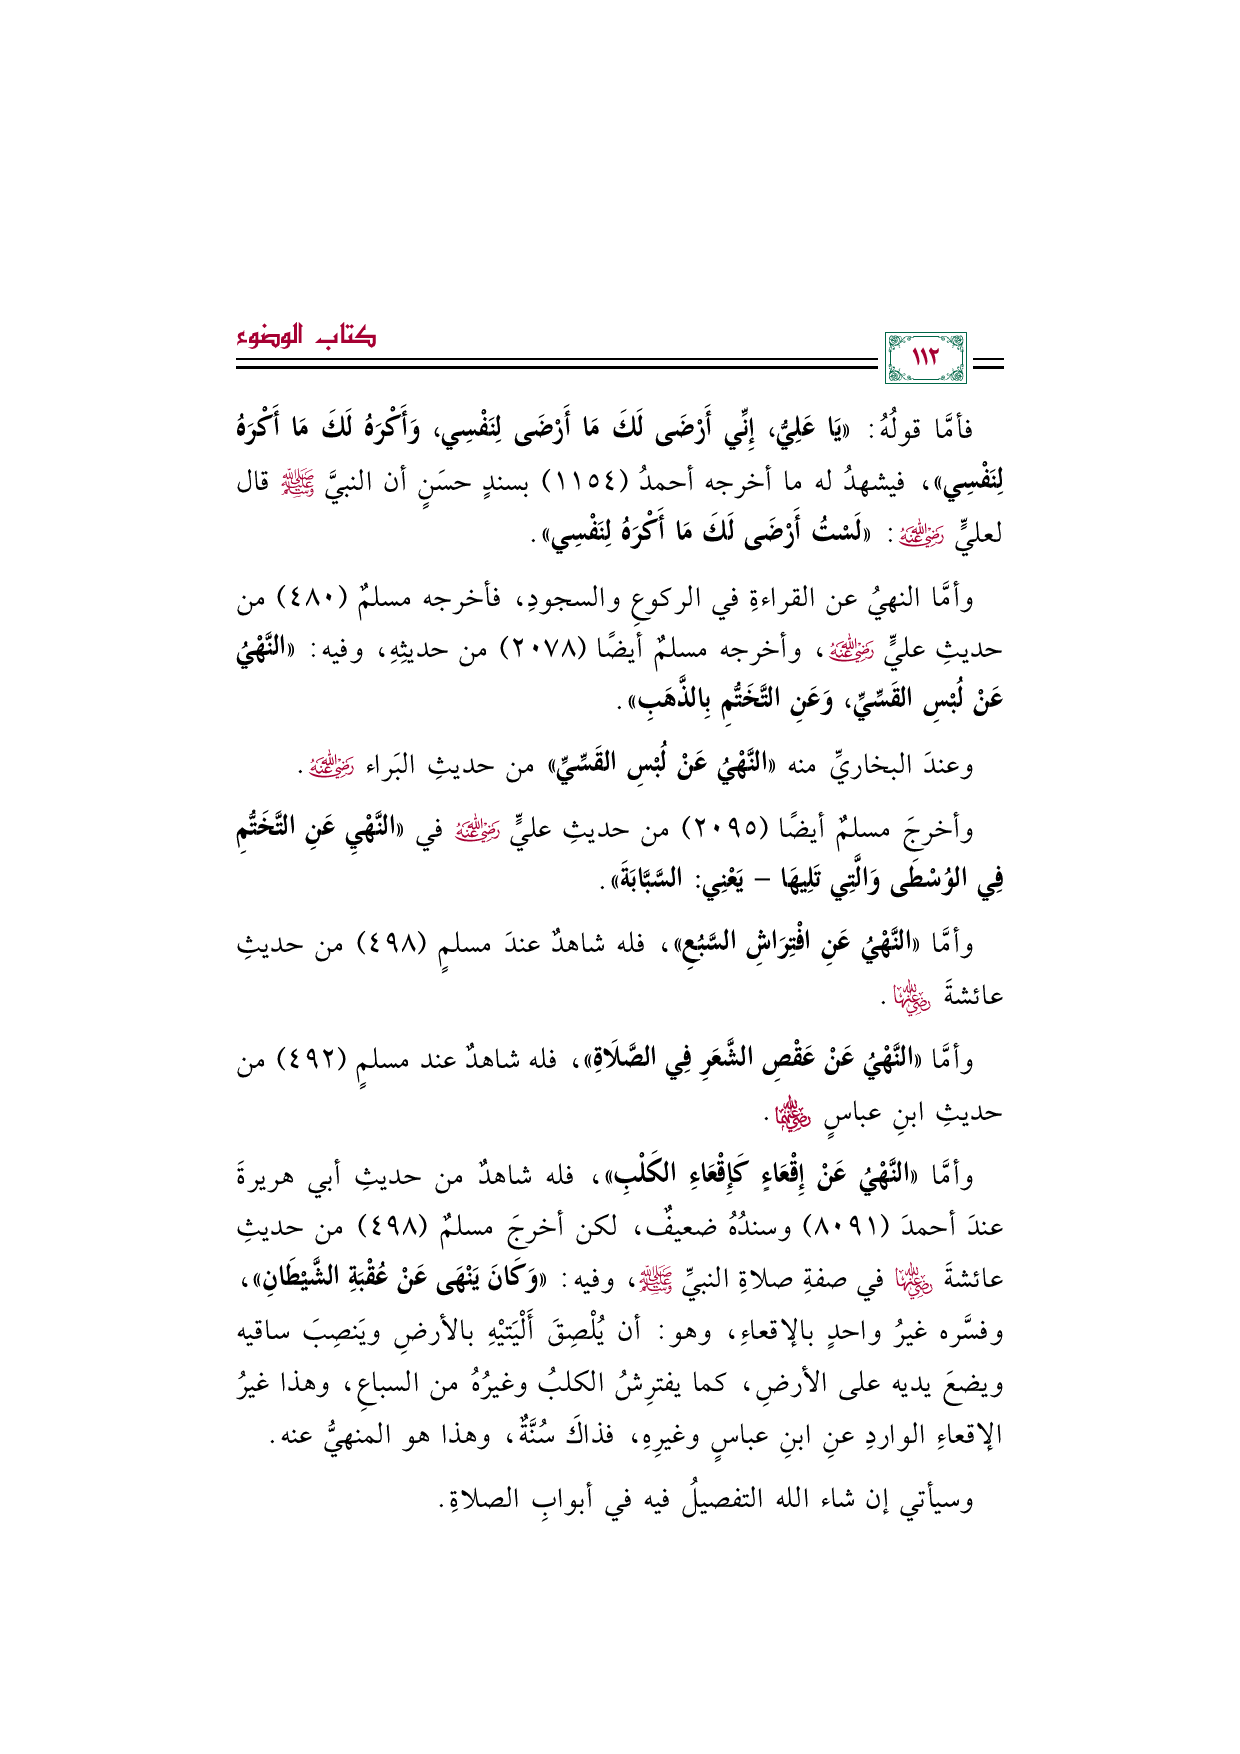 كتاب الوضوء
١١٢
فأمَّا قولُهُ: «يَا عَلِيُّ، إِنِّي أَرْضَى لَكَ مَا أَرْضَى لِنَفْسِي، وَأَكْرَهُ لَكَ مَا أَكْرَهُ
لِنَفْسِي»، فيشهدُ له ما أخرجه أحمدُ (١١٥٤) بسندٍ حسَنٍ أن النبيَّ ﷺ قال
لعليٍّ رضي الله عنه: «لَسْتُ أَرْضَى لَكَ مَا أَكْرَهُ لِنَفْسِي».
وأمَّا النهيُ عن القراءةِ في الركوعِ والسجودِ، فأخرجه مسلمٌ (٤٨٠) من
حديثِ عليٍّ رضي الله عنه، وأخرجه مسلمٌ أيضًا (٢٠٧٨) من حديثِهِ، وفيه: «النَّهْيُ
عَنْ لُبْسِ القَسِّيِّ، وَعَنِ التَّخَتُّمِ بِالذَّهَبِ».
وعندَ البخاريِّ منه «النَّهْيُ عَنْ لُبْسِ القَسِّيِّ» من حديثِ البَراء رضي الله عنه.
وأخرجَ مسلمٌ أيضًا (٢٠٩٥) من حديثِ عليٍّ رضي الله عنه في «النَّهْيِ عَنِ التَّخَتُّمِ
فِي الوُسْطَى وَالَّتِي تَلِيهَا – يَعْنِي: السَّبَّابَةَ».
وأمَّا «النَّهْيُ عَنِ افْتِرَاشِ السَّبُعِ»، فله شاهدٌ عندَ مسلمٍ (٤٩٨) من حديثِ
عائشةَ رضي الله عنها.
وأمَّا «النَّهْيُ عَنْ عَقْصِ الشَّعَرِ فِي الصَّلَاةِ»، فله شاهدٌ عند مسلمٍ (٤٩٢) من
حديثِ ابنِ عباسٍ رضي الله عنهما.
وأمَّا «النَّهْيُ عَنْ إِقْعَاءٍ كَإِقْعَاءِ الكَلْبِ»، فله شاهدٌ من حديثِ أبي هريرةَ
عندَ أحمدَ (٨٠٩١) وسندُهُ ضعيفٌ، لكن أخرجَ مسلمٌ (٤٩٨) من حديثِ
عائشةَ رضي الله عنها في صفةِ صلاةِ النبيِّ ﷺ، وفيه: «وَكَانَ يَنْهَى عَنْ عُقْبَةِ الشَّيْطَانِ»،
وفسَّره غيرُ واحدٍ بالإقعاءِ، وهو: أن يُلْصِقَ أَلْيَتَيْهِ بالأرضِ ويَنصِبَ ساقيه
ويضعَ يديه على الأرضِ، كما يفترِشُ الكلبُ وغيرُهُ من السباعِ، وهذا غيرُ
الإقعاءِ الواردِ عنِ ابنِ عباسٍ وغيرِهِ، فذاكَ سُنَّةٌ، وهذا هو المنهيُّ عنه.
وسيأتي إن شاء الله التفصيلُ فيه في أبوابِ الصلاةِ.